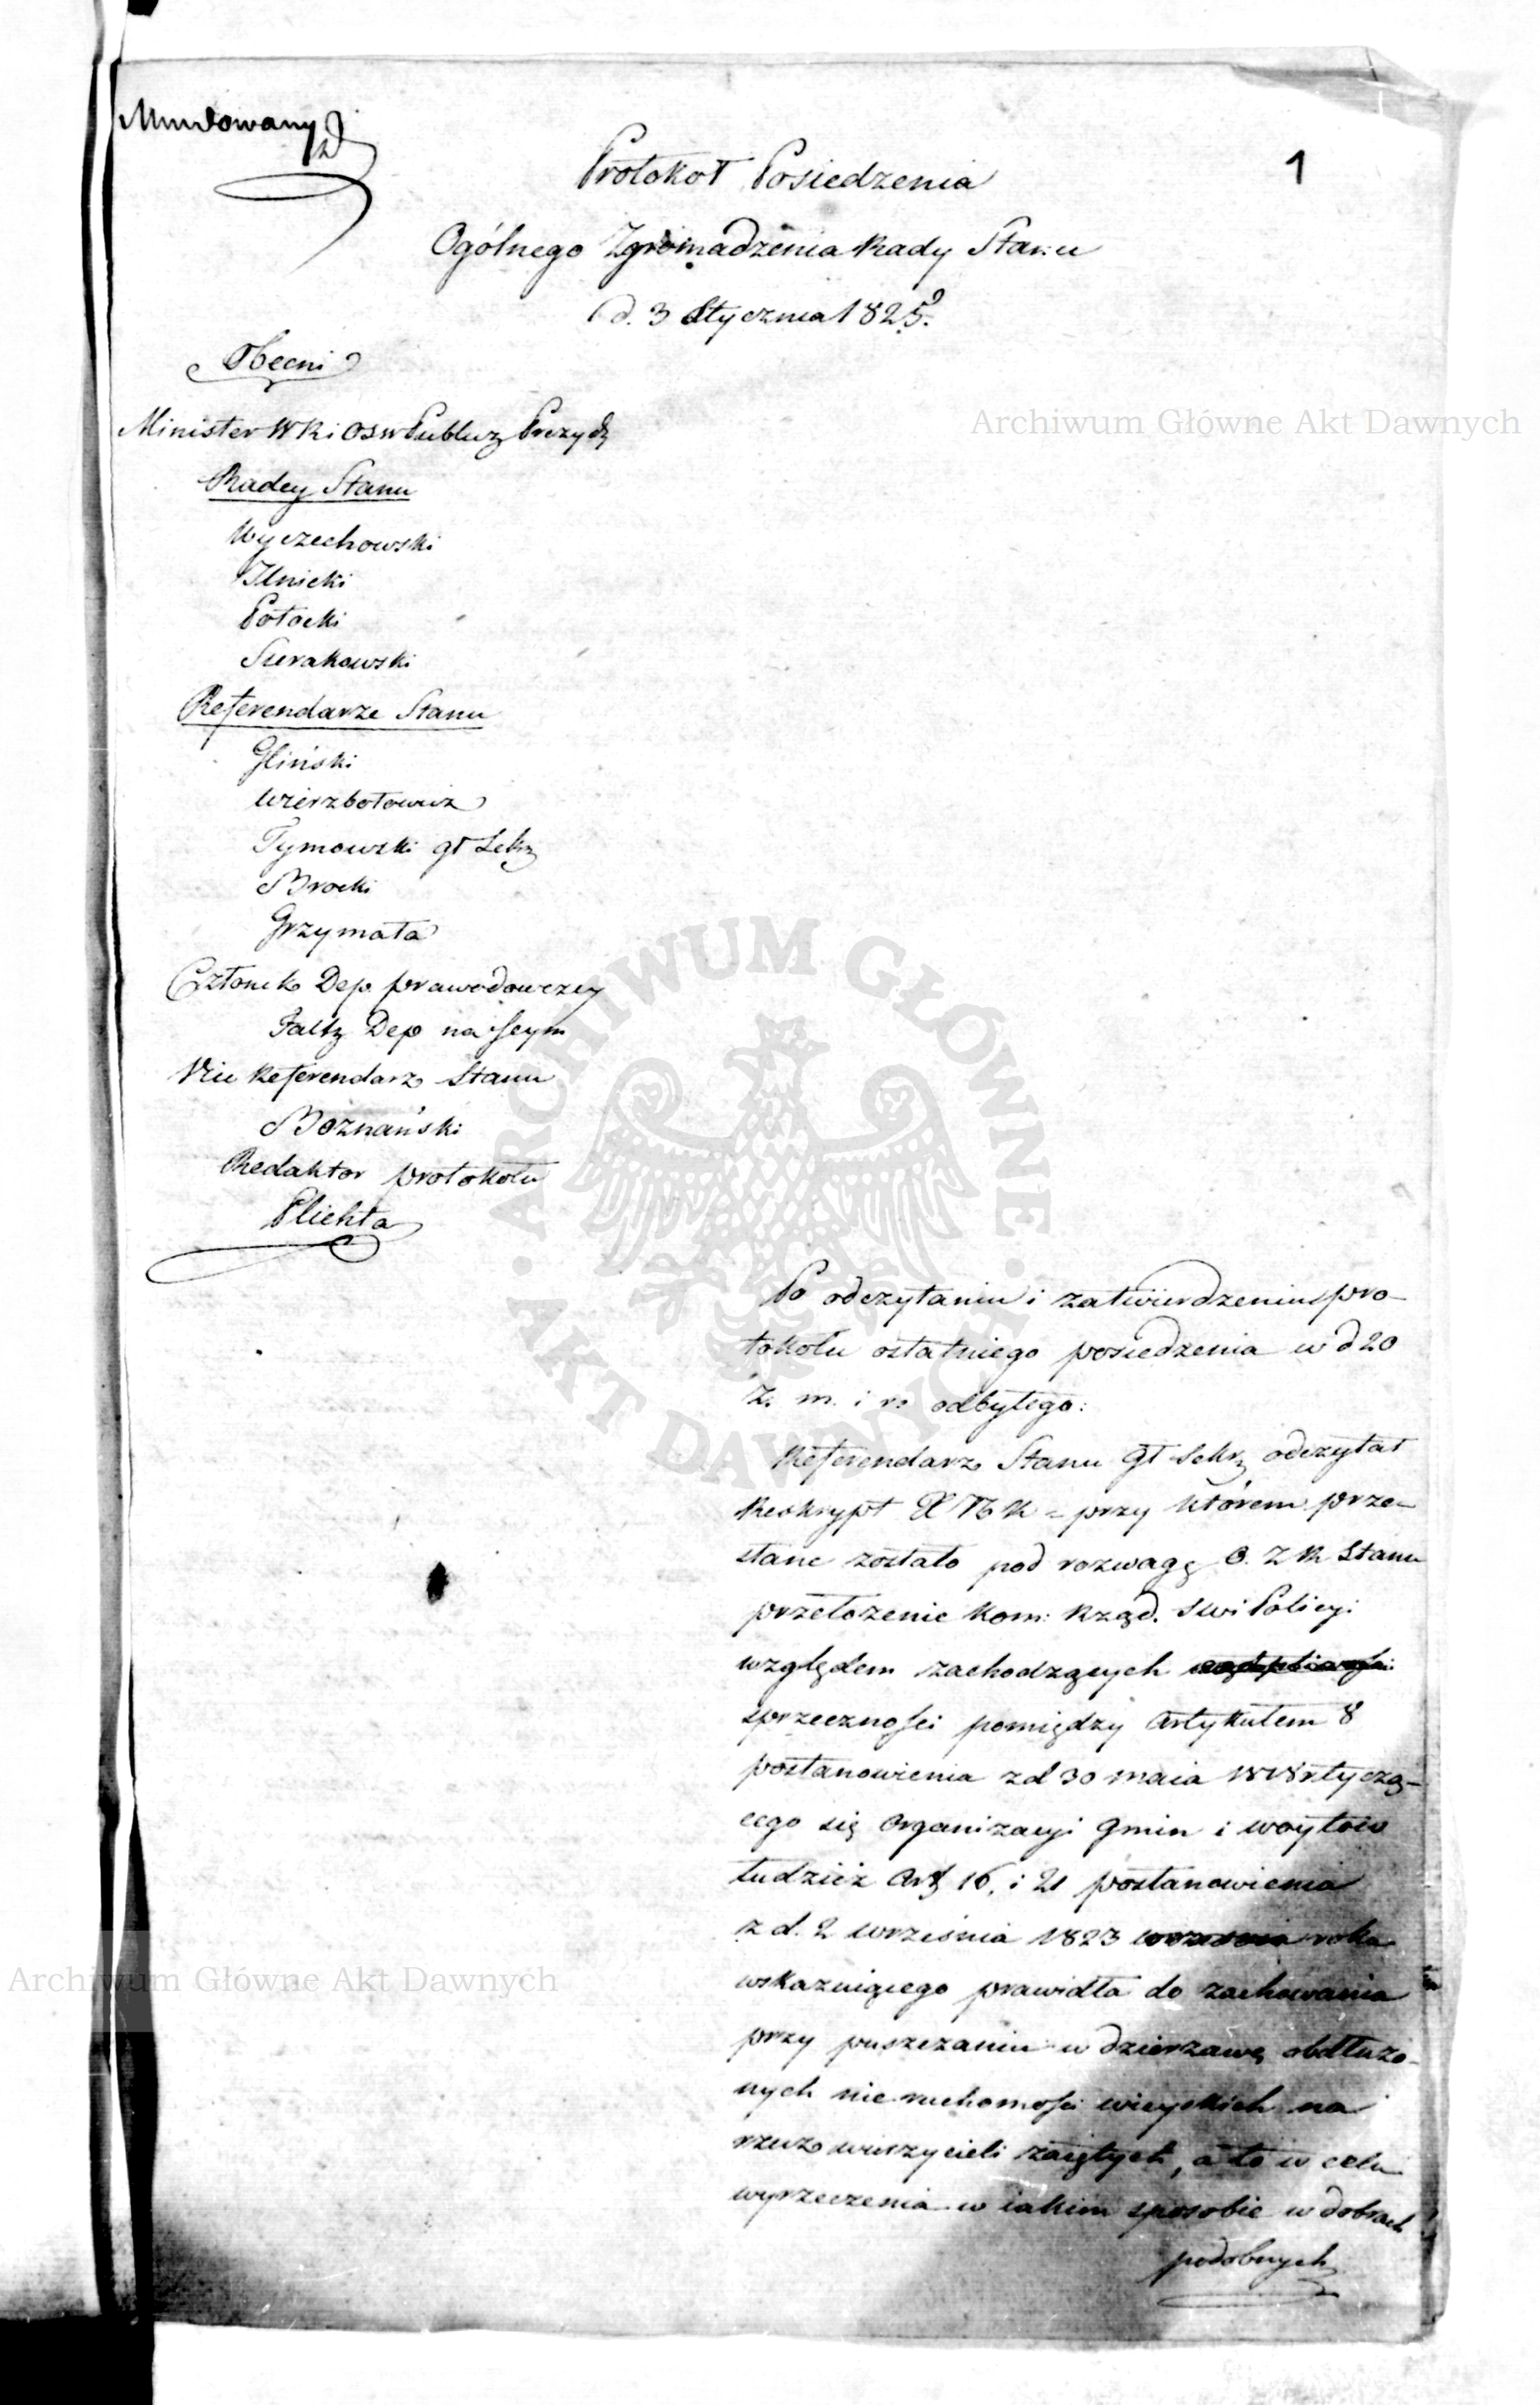 Mundowany
1
Protokół Posiedzenia
Ogólnego Zgromadzenia Rady Stanu
d. 3 Stycznia 1825.
Obecni
Minister W R i Osw Publicz Prezyd
Radcy Stanu
Wyczechowski
Ilnicki
Potocki
Sierakowski
Referendarze Stanu
Gliński
Wierzbołowicz
Tymowski gł Sekr
Brocki
Grzymała
Członek Dep. prawodawczey
Faltz Dep na Seym
Vice Referendarz Stanu
Boznański
Redaktor protokołu
Plichta
Po odczytaniu i zatwierdzeniu pro-
tokołu ostatniego posiedzenia w d 20
z. m. i r. odbytego:
Referendarz Stanu gł Sekr odczytał
Reskrypt X N K = przy którem prze-
słane zostało pod rozwagę O. Z R Stanu
przełożenie Kom: Rząd. S W i Policyi
względem zachodzących
sprzeczności pomiędzy Artykułem 8
postanowienia z d 30 maia 1818 r tyczą-
cego się Organizacyi Gmin i woytów
tudzież Art 16, i 21 postanowienia
z d. 2 września 1823 roku
wskazuiącego prawidła do zachowania
przy puszczaniu w dzierżawę obdłużo-
nych nieruchomości wieyskich na
rzecz wierzycieli zaiętych, a to w celu
wyrzeczenia w iakim sposobie w dobrach
podobnych
Archiwum Główne Akt Dawnych
ARCHIWUM GŁÓWNE
AKT DAWNYCH
Archiwum Główne Akt Dawnych